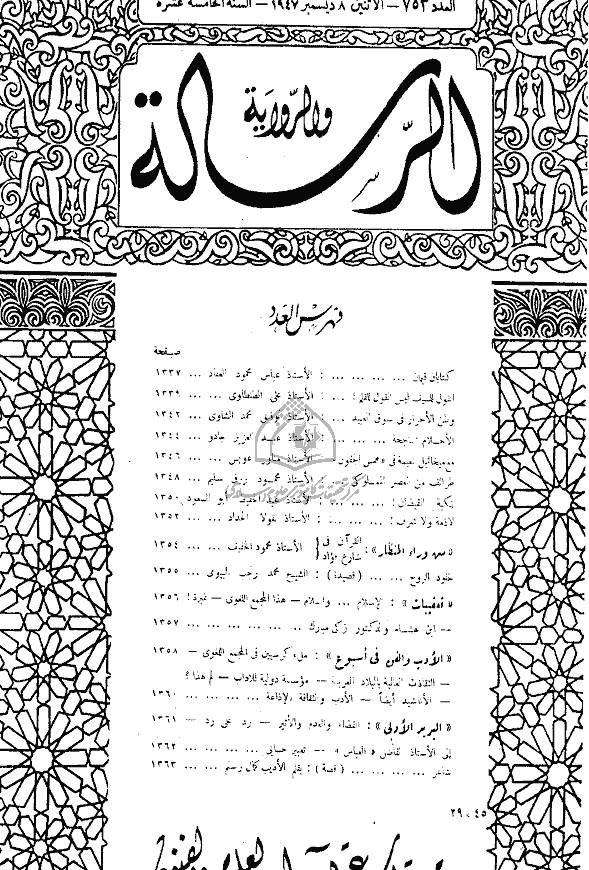 العدد ٧٥٣ — الاثنين ٨ ديسمبر ١٩٤٧ — السنة الخامسة عشرة
الرسالة
والرواية
فهرس العدد
صفحة
كتابان قيمان ... ... ... : الأستاذ عباس محمود العقاد ... ١٣٣٧
القول للسيف ليس القول للقلم ! ... : الأستاذ على الطنطاوى ... ... ١٣٣٩
وطن الأحرار فى سوق العبيد ... : الأستاذ توفيق محمد الشاوى ... ١٣٤٢
الأحلام ... ... ... : الأستاذ عبد العزيز جادو ... ١٣٤٤
ميخائيل نعيمة فى « همس الجفون » الأستاذ ... ... ١٣٤٦
طرائف من العصر المملوكى : الأستاذ محمود رزق سليم ... ١٣٤٨
... : الأستاذ ... أبو السعود ١٣٥٠
لائمة ولا شرف ! ... ... ... : الأستاذ نقولا الحداد ... ... ١٣٥٢
« من وراء المنظار » : القرآن فى شارع فؤاد } الأستاذ محمود الخفيف ... ... ١٣٥٤
خلود الروح ... ... ( قصيدة ) : الشيخ محمد رجب البيومى ... ١٣٥٥
« تعقيبات » : الإسلام ... والسلام — هذا المجمع اللغوى — ! ١٣٥٦
— ابن هشام والدكتور زكى مبارك ... ... ... ... ... ١٣٥٧
« الأدب والفن فى أسبوع » : ملء كرسيين فى المجمع اللغوى — ١٣٥٨
— بالبلاد العربية — مؤسسة دولية للآداب — لم هذا ؟
— الأناشيد أيضاً — الأدب والثقافة بالإذاعة ... ... ... ... ١٣٦٠
« البريد الأدبى » : القضاء والعدم والأثير — رد على رد — ١٣٦١
إلى الأستاذ الفاضل « العباس » — تعبير حسابى ... ... ... ... ١٣٦٢
شاعر ... ... ... ( قصة ) : بقلم الأديب كمال رستم ... ... ١٣٦٣